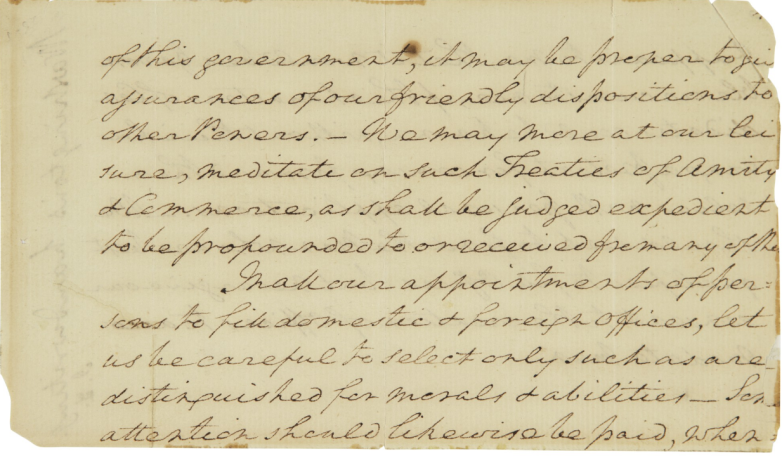 of this government, it may be proper to gi
assurances of our friendly dispositions to
other Powers. — We may more at our lei
sure, meditate on such Treaties of Amity
& Commerce, as shall be judged expedient
to be propounded to or received from any of the
In all our appointments of per=
sons to fill domestic & foreign offices, let
us be careful to select only such as are
distinguished for morals & abilities — Som
attention should likewise be paid, when=